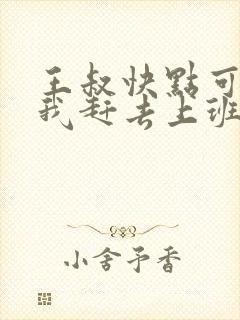 王叔快點可
我赶去上班
小舍予香